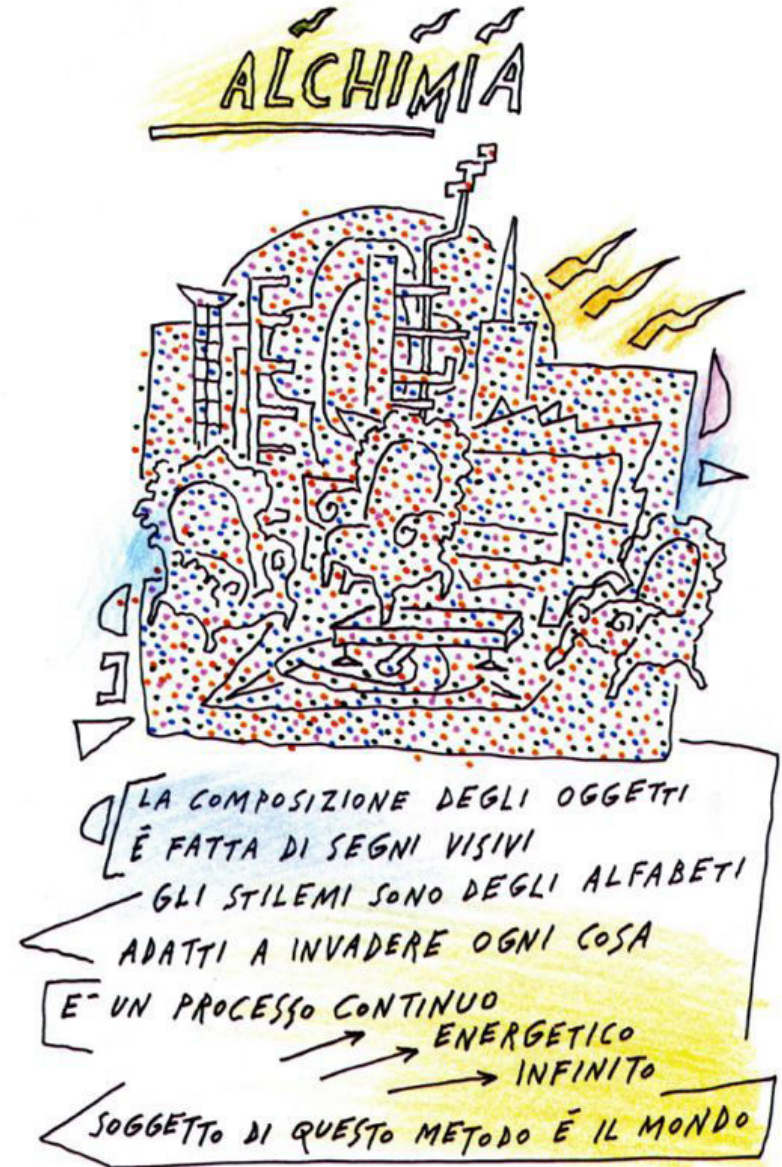 ALCHIMIA
LA COMPOSIZIONE DEGLI OGGETTI
È FATTA DI SEGNI VISIVI
GLI STILEMI SONO DEGLI ALFABETI
ADATTI A INVADERE OGNI COSA
E- UN PROCESSO CONTINUO
ENERGETICO
INFINITO
SOGGETTO DI QUESTO METODO È IL MONDO